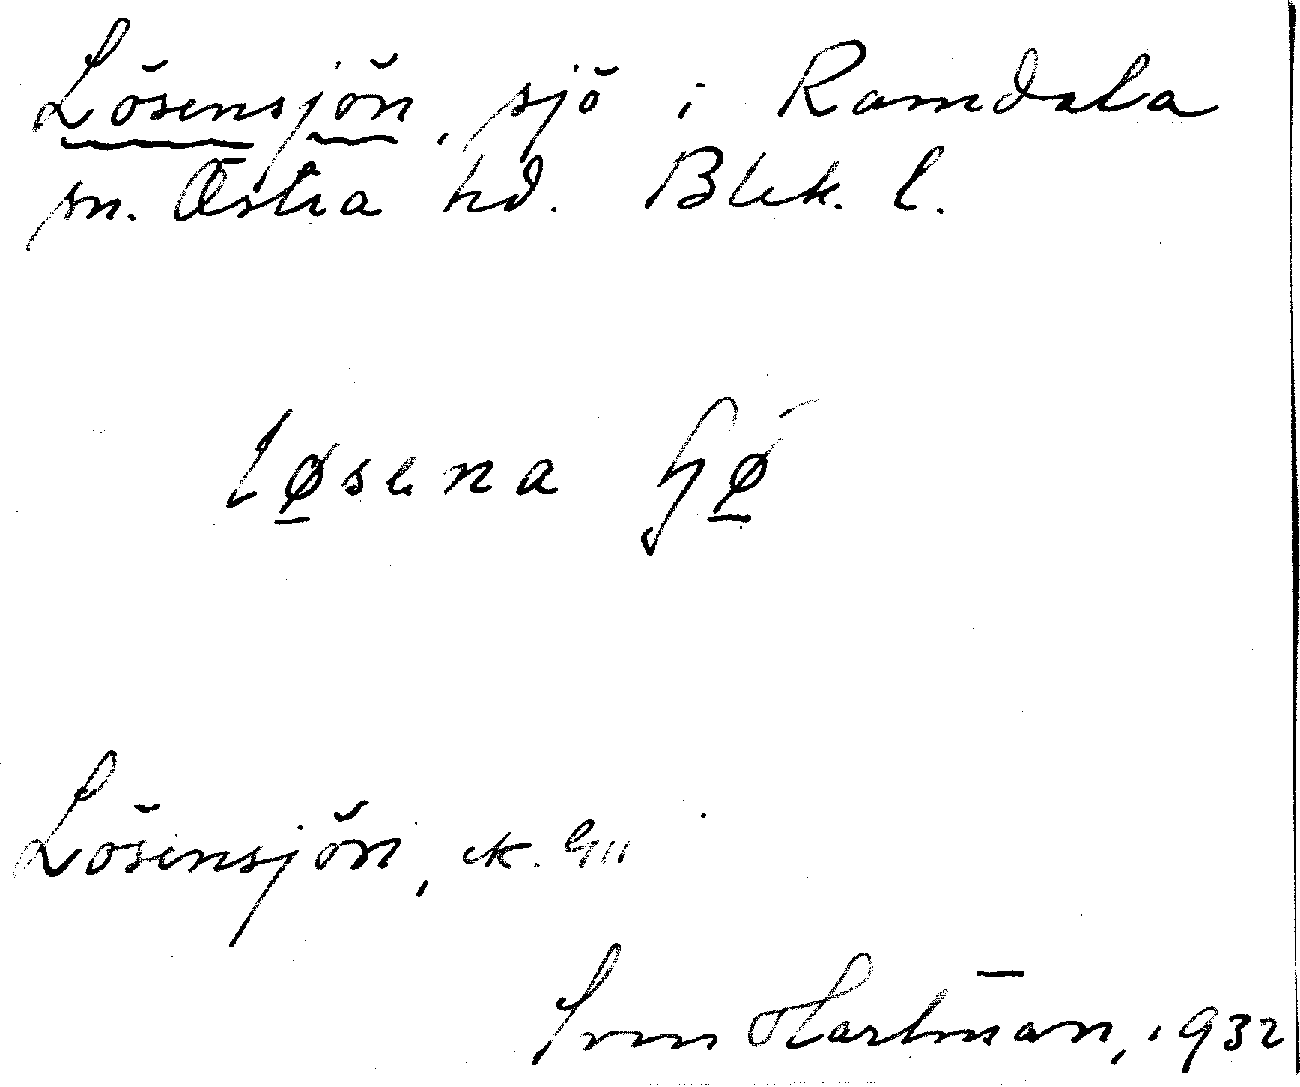 Lösensjön, sjö i Ramdala
sn. Östra hd. Blek. l.
løsena
Lösensjön, ek.
Sven Hartman, 1932